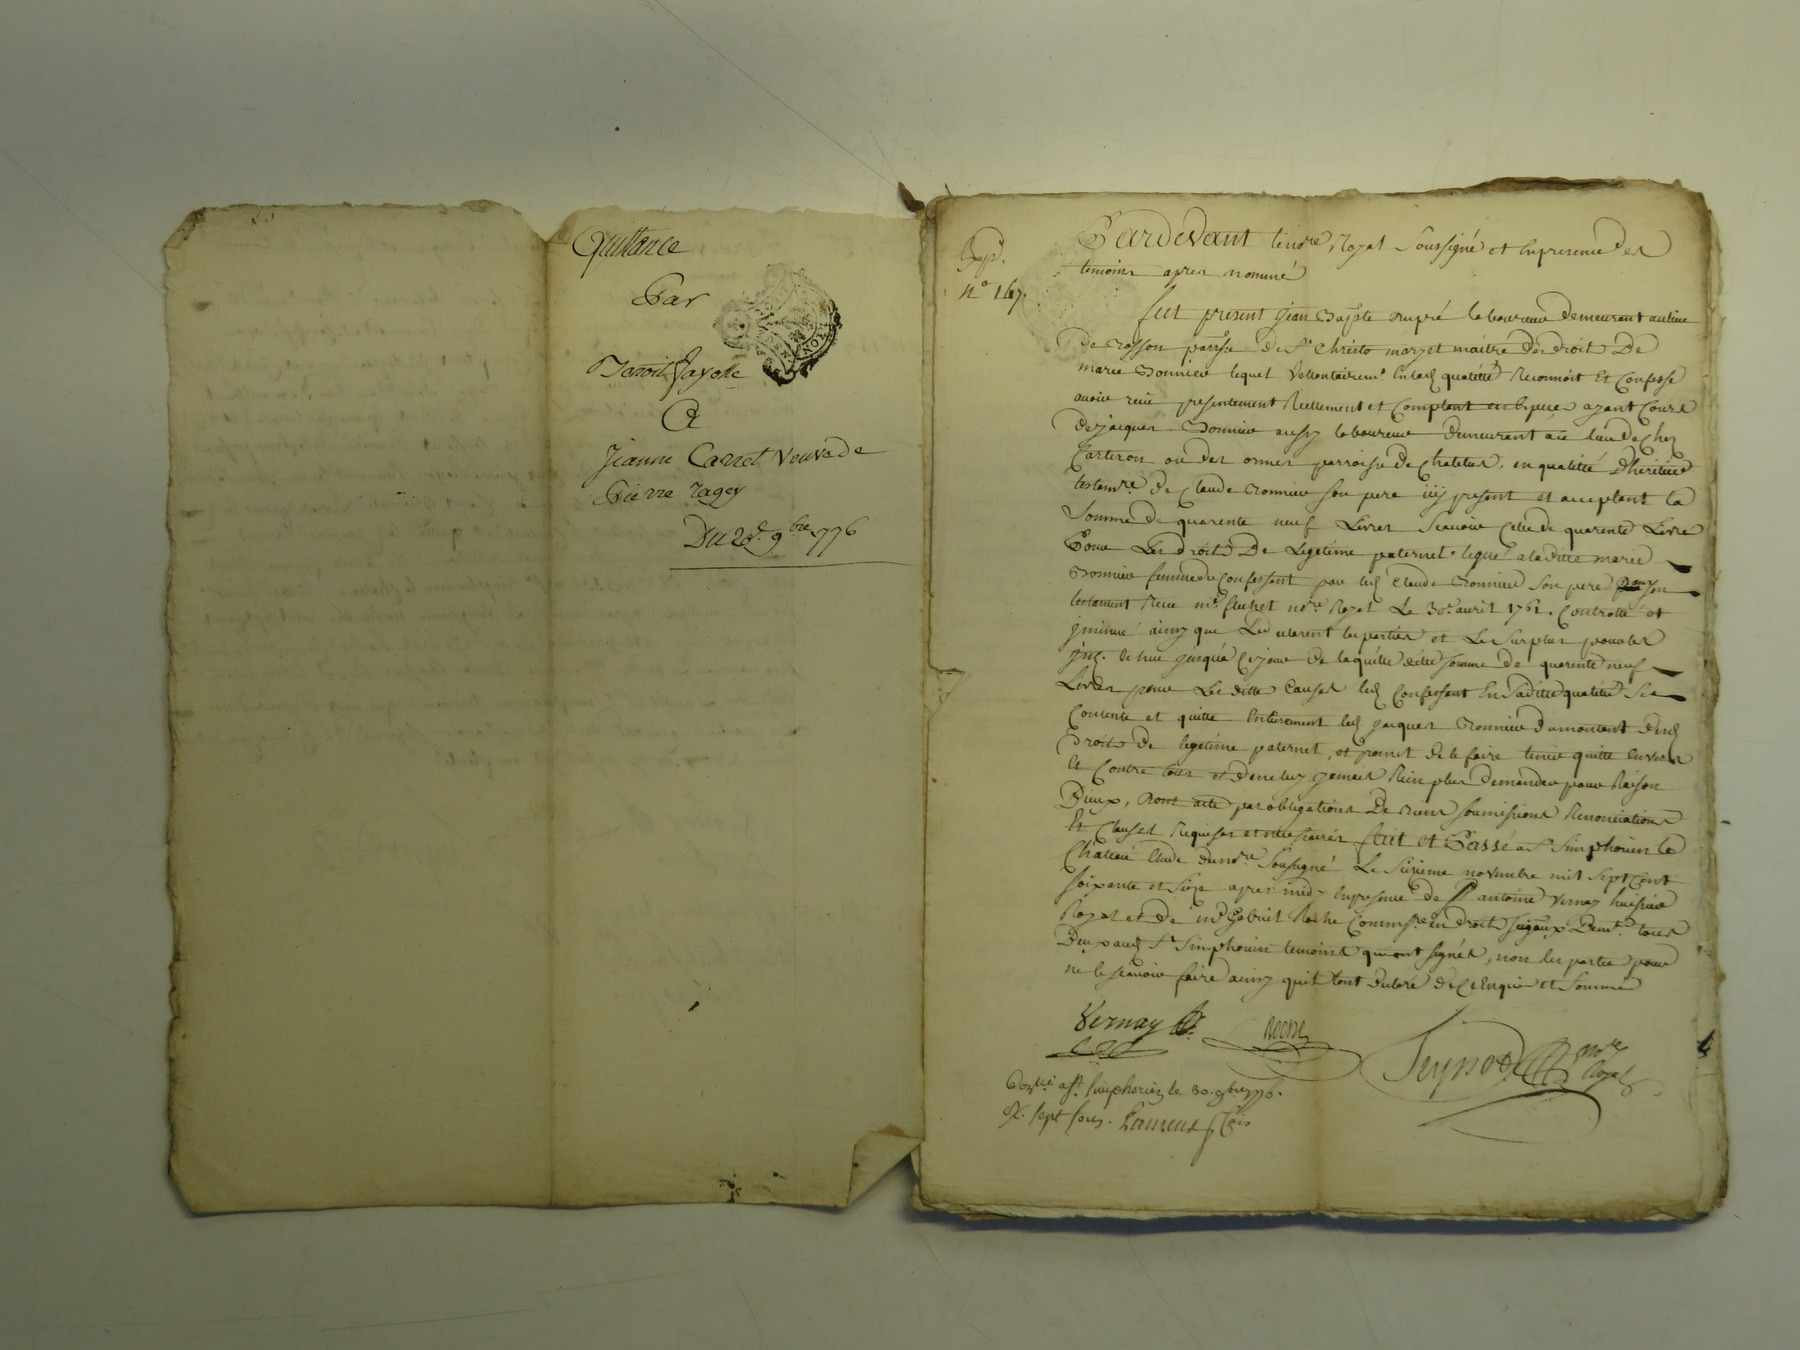 Quittance
Par
Benoit Fayolle
A
Jeanne Carret Veuve de
Pierre ragey
Du 28e 9bre 1776
Exp.
n° 167.
Pardevant le nore Royal Soussigné et en presence des
temoins apres nommé
fut present jean Bapte dupré laboureur demeurant au lieu
de parrsse de St Christo maryet maitre des droits De
marie Bonnier lequel Vollontairemt. en lad qualitté Reconnoit Et Confesse
avoir reçu presentement Reellement et Comptant en Especes ayant Cours
de jacques Bonnier aussy laboureur demeurant au lieu de Chez
Carteron ou des ormes parroisse de Chatelus, en qualitté D'heritier
testamre. de Claude Bonnier son pere icy present et acceptant la
Somme de quarente neuf Livres Scavoir Celle de quarente Livre
Pour Les droits De Legitime paternel legué a laditte marie
Bonnier femme du Confessant par led Claude Bonnier Son pere par son
testament Recu me nore Royal Le 30e avril 1761. Controllé et
jnsinué ainsy que Le declarent les parties et Le Surplus pour les
jnt. de jusqu'a Ce jour de laquelle ditte Somme de quarente neuf
Livres pour Les ditte Causes led Confessant En Saditte qualitté Se
Contente et quitte Entierement led jacques Bonnier du montant desd
Droits de legitime paternel, et promet de le faire tenir quitte Envers
Et Contre tous et de ne luy jamais Rien plus Demander pour Raison
D'iceux, Dont acte par obligations De Biens Soumissions Renonciations
Et Clauses Requises et necessaires fait et Passé a St Simphorien le
Chateau Etude du nore. Soussigné Le Sixieme novembre mil Sept Cent
Soixante et Seize apres midy En presence de Sr antoine Vernay huissier
Royal et de me Gabriel Roche Commisre. en droits seigaux Demt. tous
Deux aud St Simphorien temoins qui ont signés, non les parties pour
ne le scavoir faire ainsy qu'il l'ont declaré de Ce Enquis et Sommé
Vernay Roche
nore Royal
Conlé a St. Simphorien le 30. 9bre 1776.
R. Sept Sous.